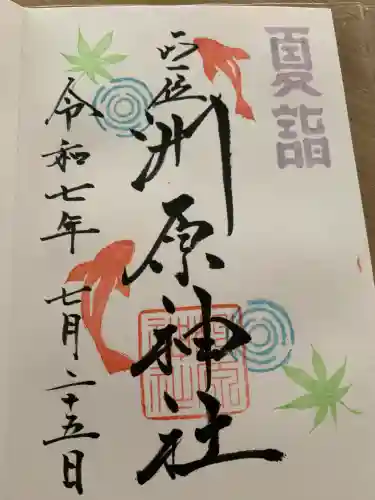 夏詣
正一位
洲原神社
令和七年 七月二十五日